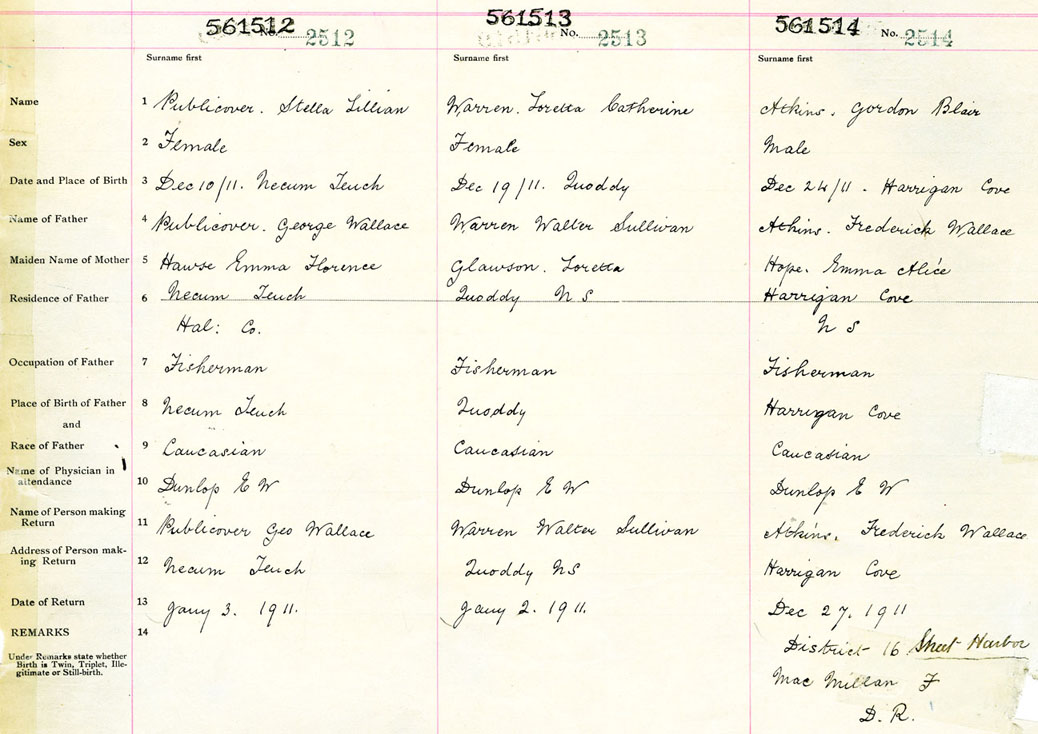 561512 No. 2512 561513 No. 2513 561514 No. 2514
Surname first Surname first Surname first
Name 1 Publicover. Stella Lillian Warren. Loretta Catherine Atkins. Gordon Blair
Sex 2 Female Female Male
Date and Place of Birth 3 Dec 10/11. Necum Teuch Dec 19/11. Quoddy Dec 24/11. Harrigan Cove
Name of Father 4 Publicover. George Wallace Warren Walter Sullivan Atkins. Frederick Wallace
Maiden Name of Mother 5 Hawse Emma Florence Glawson. Loretta Hope. Emma Alice
Residence of Father 6 Necum Teuch Quoddy N S Harrigan Cove
Hal: Co. N S
Occupation of Father 7 Fisherman Fisherman Fisherman
Place of Birth of Father 8 Necum Teuch Quoddy Harrigan Cove
and
Race of Father 9 Caucasian Caucasian Caucasian
Name of Physician in
attendance 10 Dunlop E W Dunlop E W Dunlop E W
Name of Person making
Return 11 Publicover Geo Wallace Warren Walter Sullivan Atkins. Frederick Wallace
Address of Person mak-
ing Return 12 Necum Teuch Quoddy NS Harrigan Cove
Date of Return 13 Jany 3. 1911. Jany 2. 1911. Dec 27. 1911
REMARKS 14
Under Remarks state whether
Birth is Twin, Triplet, Ille-
gitimate or Still-birth.
District 16 Sheet Harbor
Mac Millan F
D. R.